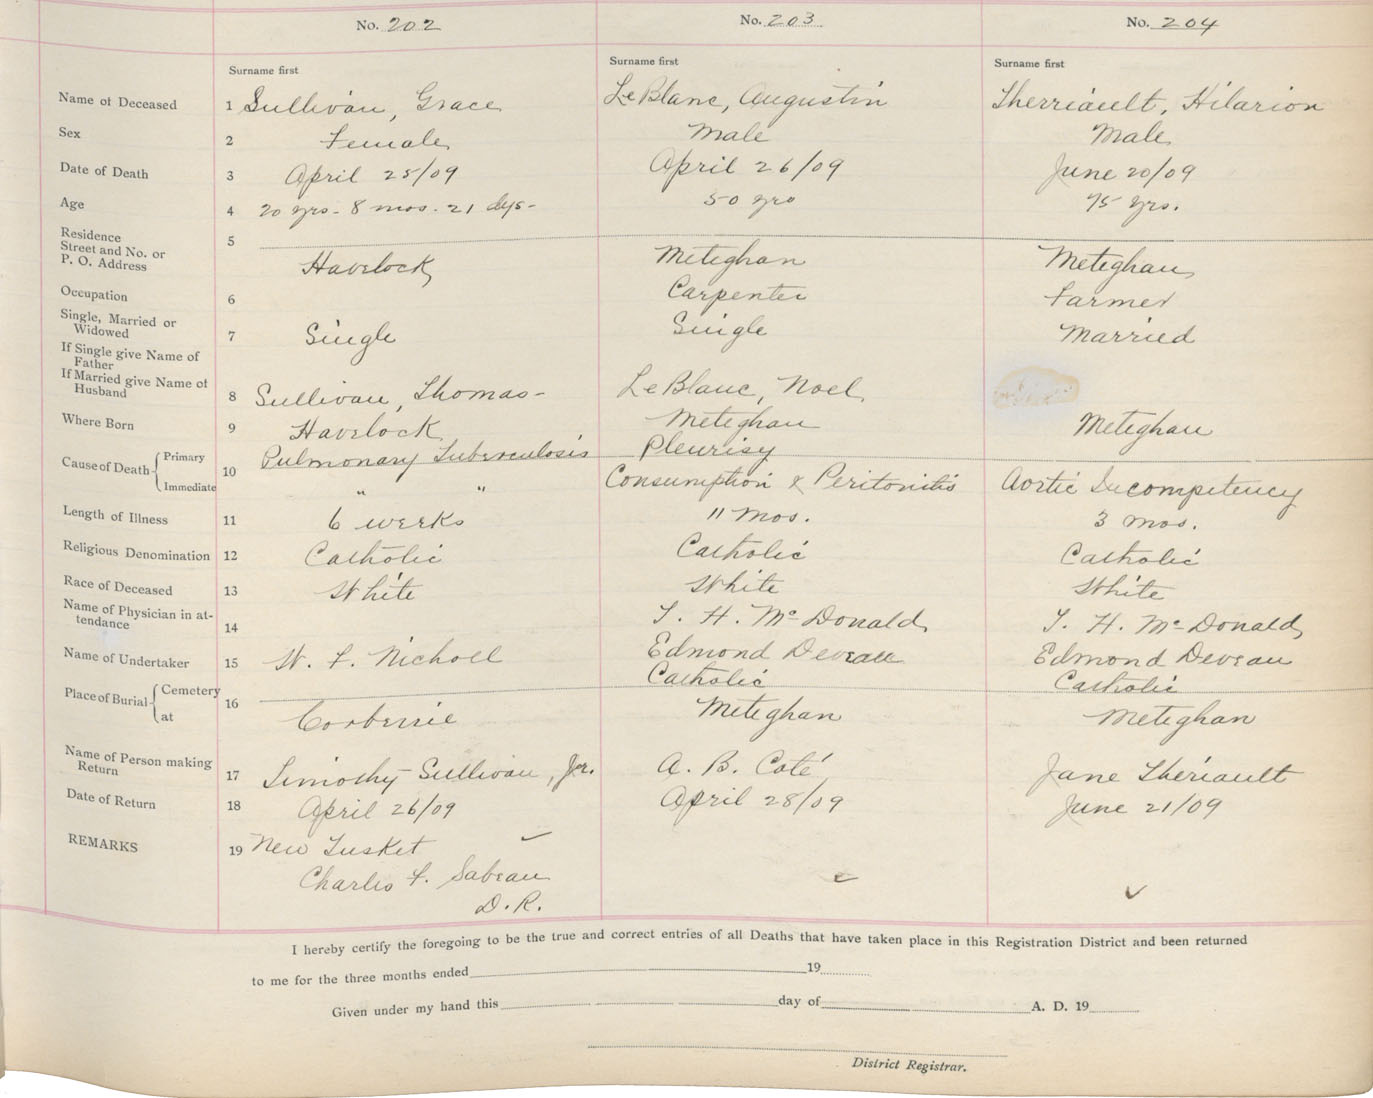 No. 202 No. 203 No. 204
Surname first Surname first Surname first
Name of Deceased 1 Sullivan, Grace LeBlanc, Augustin Therriault, Hilarion
Sex 2 Female Male Male
Date of Death 3 April 25/09 April 26/09 June 20/09
Age 4 20 yrs - 8 mos. 21 dys - 50 yrs 75 yrs.
Residence
Street and No. or 5
P. O. Address Havelock Meteghan Meteghan
Occupation 6 Carpenter Farmer
Single, Married or
Widowed 7 Single Single Married
If Single give Name of
Father
If Married give Name of
Husband 8 Sullivan, Thomas - LeBlanc, Noel
Where Born 9 Havelock Meteghan Meteghan
Cause of Death Primary 10 Pulmonary Tuberculosis Pleurisy
Immediate " " Consumption & Peritonitis Aortic Incompetency
Length of Illness 11 6 weeks 11 mos. 3 mos.
Religious Denomination 12 Catholic Catholic Catholic
Race of Deceased 13 White White White
Name of Physician in at-
tendance 14 T. H. McDonald T. H. McDonald
Name of Undertaker 15 W. F. Nicholl Edmond Deveau Edmond Deveau
Place of Burial Cemetery 16 Catholic Catholic
at Corberrie Meteghan Meteghan
Name of Person making
Return 17 Timothy Sullivan, Jr. A. B. Coté Jane Thériault
Date of Return 18 April 26/09 April 28/09 June 21/09
REMARKS 19 New Tusket
Charles F. Sabean
D. R.
I hereby certify the foregoing to be the true and correct entries of all Deaths that have taken place in this Registration District and been returned
to me for the three months ended 19
Given under my hand this day of A. D. 19
District Registrar.